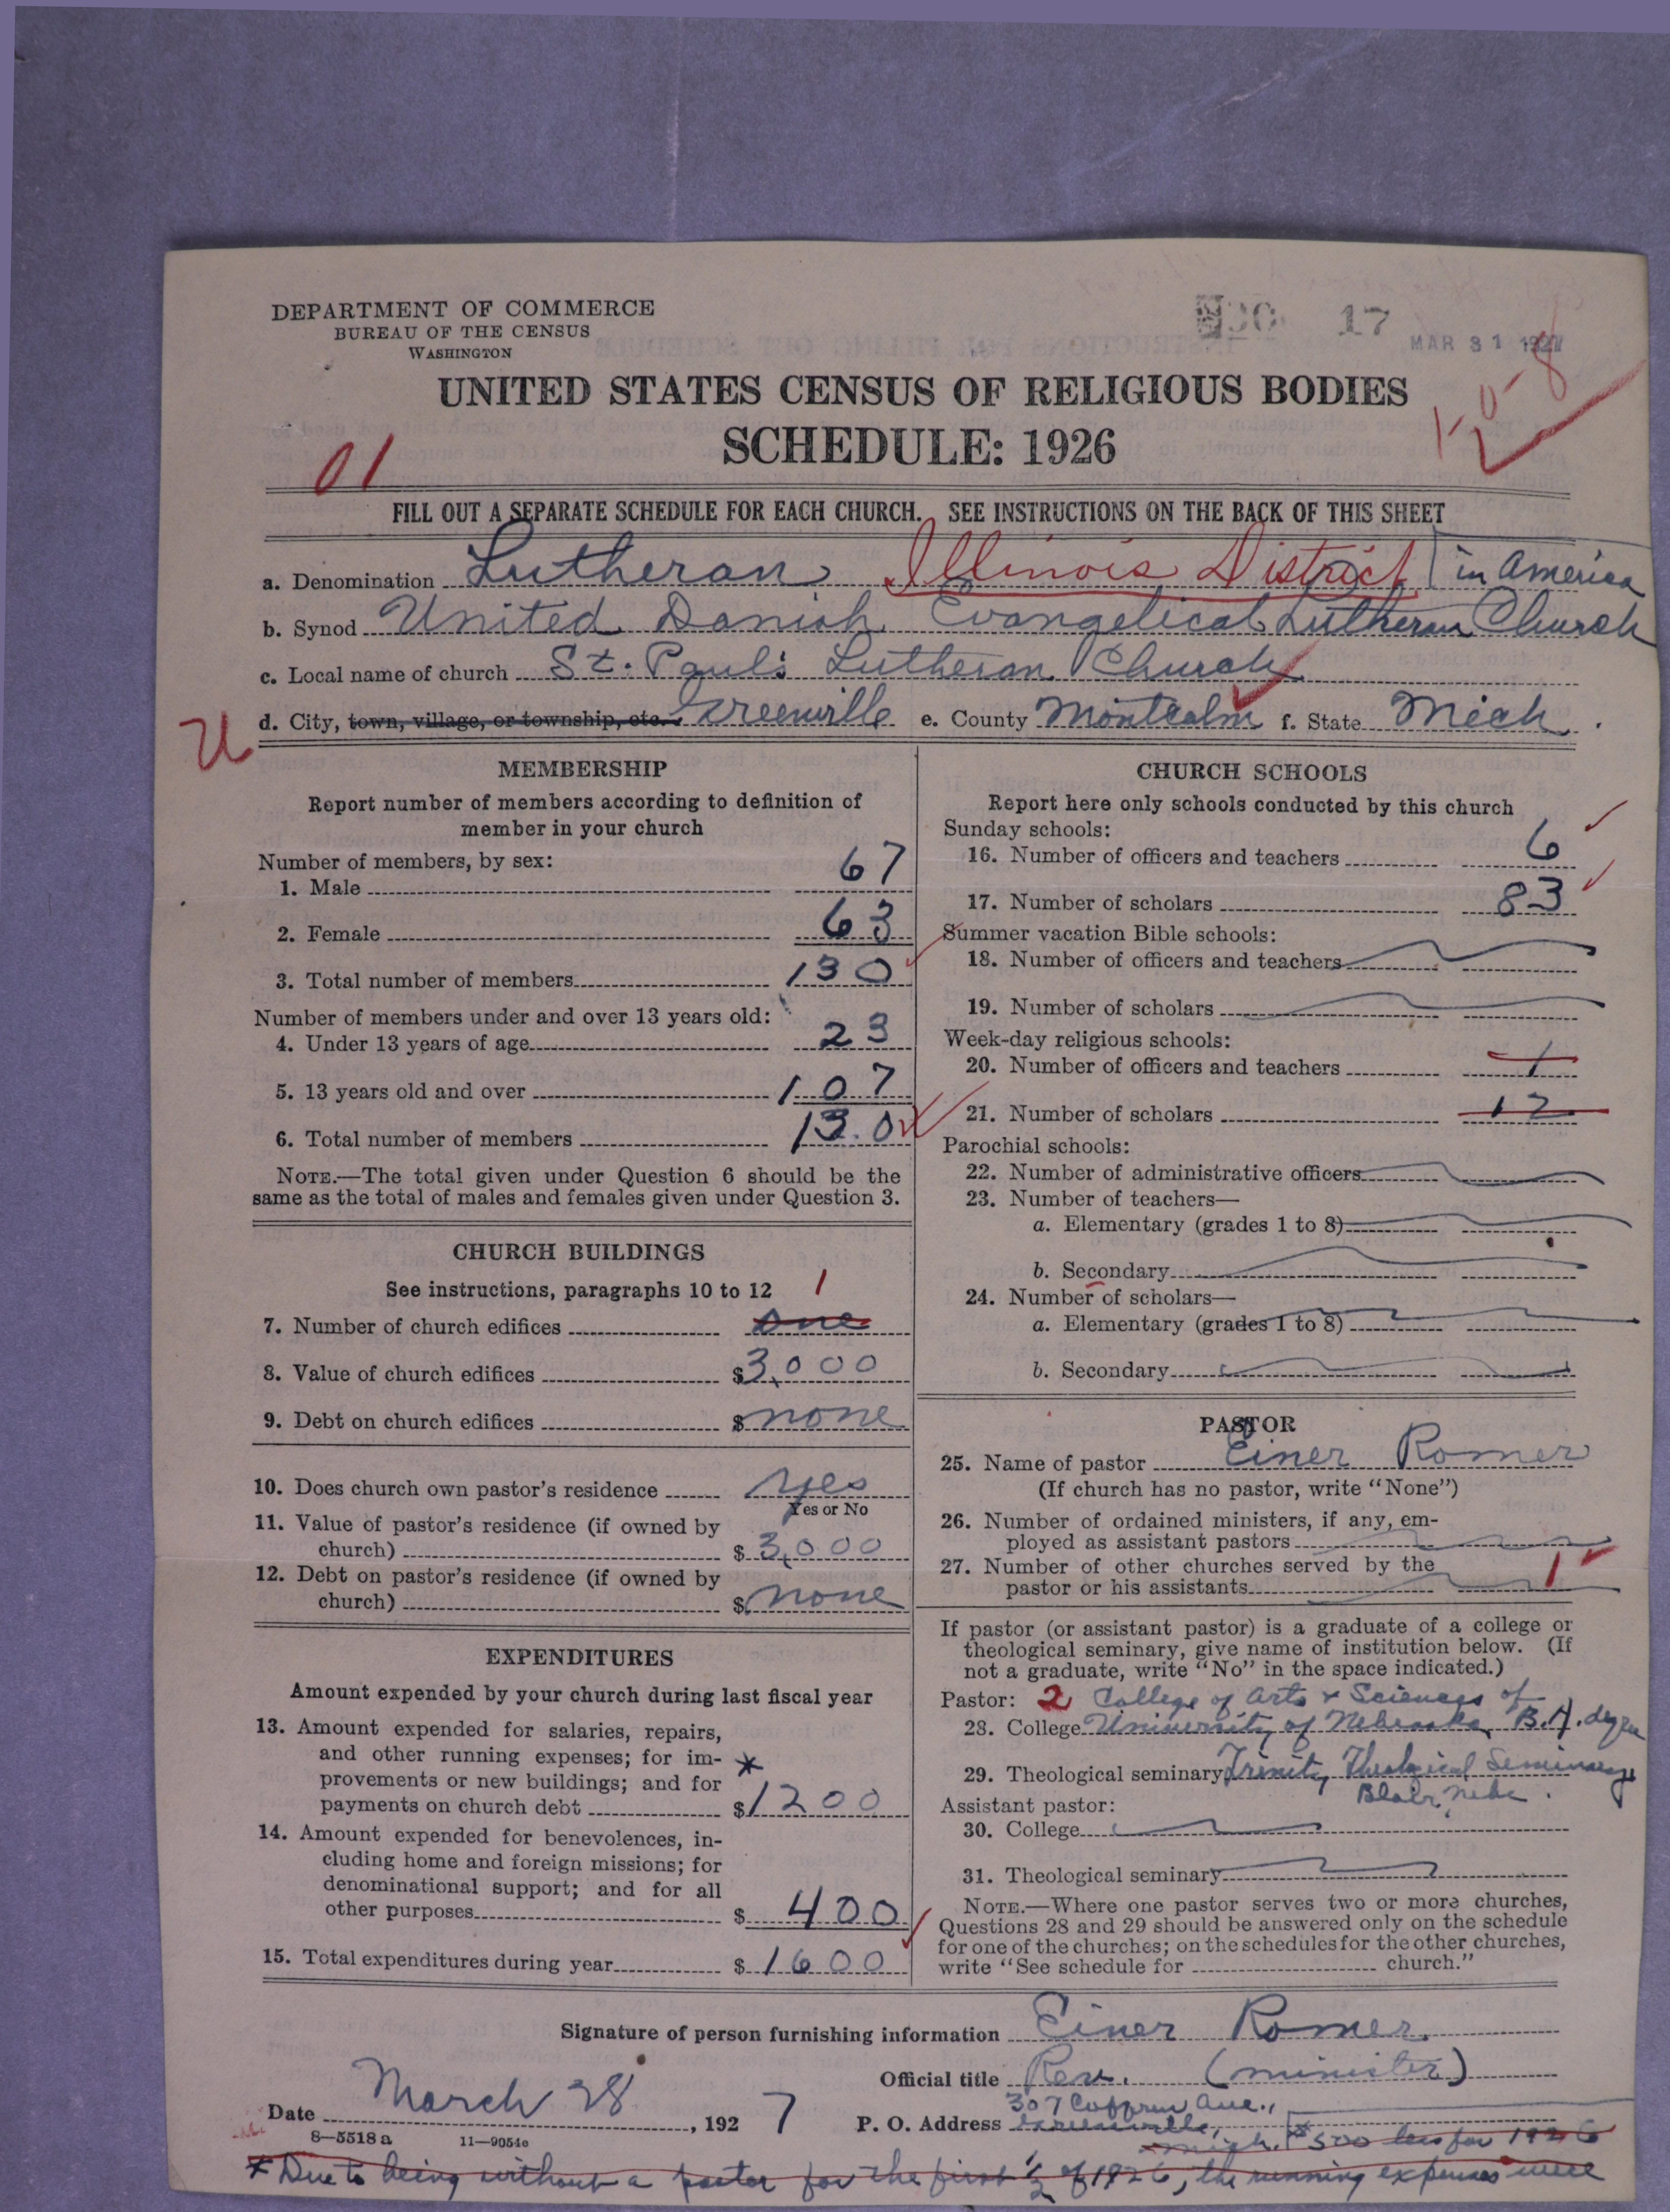 DEPARTMENT OF COMMERCE
BUREAU OF THE CENSUS
WASHINGTON
17
MAR 31 1927
UNITED STATES CENSUS OF RELIGIOUS BODIES
SCHEDULE: 1926
10-8
01
FILL OUT A SEPARATE SCHEDULE FOR EACH CHURCH. SEE INSTRUCTIONS ON THE BACK OF THIS SHEET
a. Denomination Lutheran Illinois District in America
b. Synod United Danish Evangelical Lutheran Church
c. Local name of church St. Paul's Lutheran Church
d. City, town, village, or township, etc. Greenville e. County Montcalm f. State Mich.
U
MEMBERSHIP
Report number of members according to definition of
member in your church
Number of members, by sex:
1. Male 67
2. Female 63
3. Total number of members 130
Number of members under and over 13 years old:
4. Under 13 years of age 23
5. 13 years old and over 107
6. Total number of members 130
NOTE.—The total given under Question 6 should be the
same as the total of males and females given under Question 3.
CHURCH BUILDINGS
See instructions, paragraphs 10 to 12
1
7. Number of church edifices one
8. Value of church edifices $3,000
9. Debt on church edifices $ none
10. Does church own pastor's residence yes
Yes or No
11. Value of pastor's residence (if owned by
church) $ 3,000
12. Debt on pastor's residence (if owned by
church) $ none
EXPENDITURES
Amount expended by your church during last fiscal year
13. Amount expended for salaries, repairs,
and other running expenses; for im- *
provements or new buildings; and for
payments on church debt $1200
14. Amount expended for benevolences, in-
cluding home and foreign missions; for
denominational support; and for all
other purposes $ 400
15. Total expenditures during year $ 1600
CHURCH SCHOOLS
Report here only schools conducted by this church
Sunday schools:
16. Number of officers and teachers 6
17. Number of scholars 83
Summer vacation Bible schools:
18. Number of officers and teachers
19. Number of scholars
Week-day religious schools:
20. Number of officers and teachers 1
21. Number of scholars 12
Parochial schools:
22. Number of administrative officers
23. Number of teachers—
a. Elementary (grades 1 to 8)
b. Secondary
24. Number of scholars—
a. Elementary (grades 1 to 8)
b. Secondary
PASTOR
25. Name of pastor Einer Romer
(If church has no pastor, write "None")
26. Number of ordained ministers, if any, em-
ployed as assistant pastors
27. Number of other churches served by the
pastor or his assistants 1
If pastor (or assistant pastor) is a graduate of a college or
theological seminary, give name of institution below. (If
not a graduate, write "No" in the space indicated.)
Pastor: 2 College of Arts & Sciences of
28. College University of Nebraska, B.A. degree
29. Theological seminary Trinity Theological Seminary
Blair, Nebr.
Assistant pastor:
30. College
31. Theological seminary
NOTE.—Where one pastor serves two or more churches,
Questions 28 and 29 should be answered only on the schedule
for one of the churches; on the schedules for the other churches,
write "See schedule for church."
Signature of person furnishing information Einer Romer
Official title Rev. (minister)
Date March 28, 1927
307 Coffren Ave.,
P. O. Address Greenville,
Mich. $500 less for 1926
8—5518 a 11—9054c
* Due to being without a pastor for the first 1/2 of 1926, the running expenses were